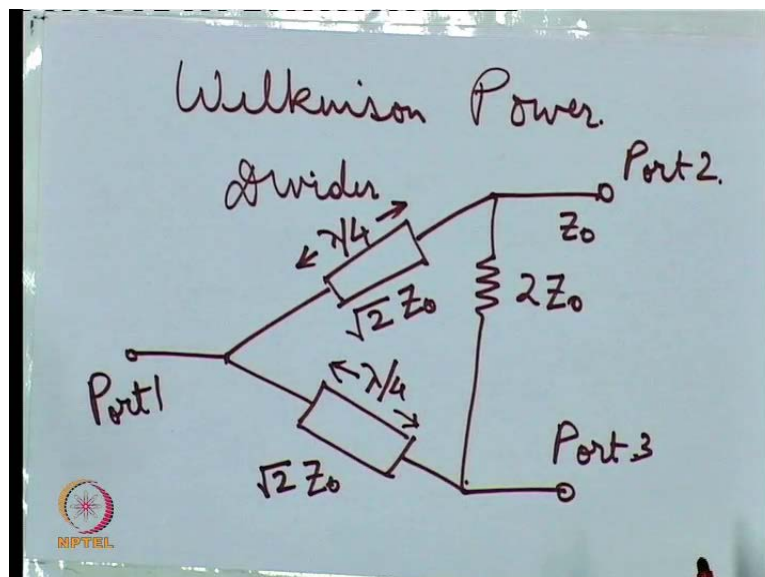 Wilkinson Power.
Divider
Port 2.
λ/4
Z₀
√2 Z₀
2Z₀
Port 1
λ/4
Port.3
√2 Z₀
NPTEL